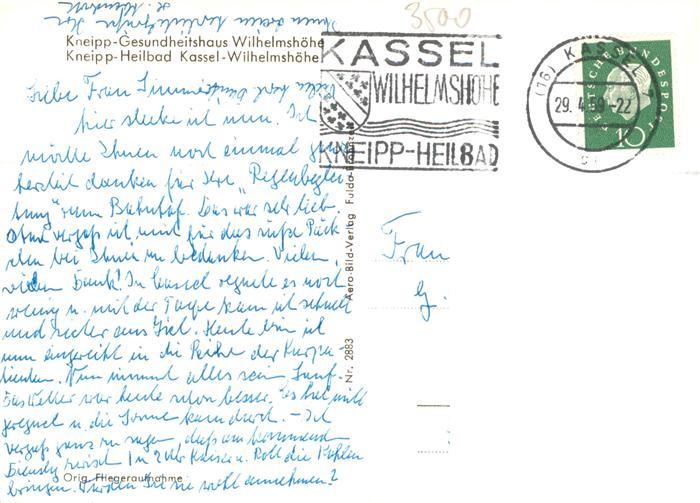 3500
Kneipp-Gesundheitshaus Wilhelmshöhe
Kneipp-Heilbad Kassel-Wilhelmshöhe
KASSEL
WILHELMSHÖHE
KNEIPP-HEILBAD
(16) KASSEL 7
29. 4. 59.-22
DEUTSCHE BUNDESPOST
10
Liebe Frau
hier stecke ich nun. Ich
möchte Ihnen noch einmal ganz
herzlich danken für Ihre "Regenbeglei-
tung" zum Bahnhof. Das war sehr lieb.
Aber vergaß ich mich für das süße Päck-
chen bei Ihnen zu bedanken. Vielen,
vielen Dank! In Kassel regnete es noch
wenig u. mit der Taxe kam ich schnell
und sicher ans Ziel. Heute bin ich
nun eingereiht in die Reihe der Kurpa-
tienten. Nun nimmt alles sein Lauf.
Das Wetter war heute schon besser. Es hat nicht
geregnet u. die Sonne kam durch. - Ich
vergaß ganz zu sagen, daß am kommend
Dienstg zwisch 1 u 2 Uhr Kaiser u. Roll die Kohlen
bringen. Würden Sie sie wohl annehmen?
Orig. Fliegeraufnahme
Nr. 2883 Aero-Bild-Verlag Fulda
Frau
G.